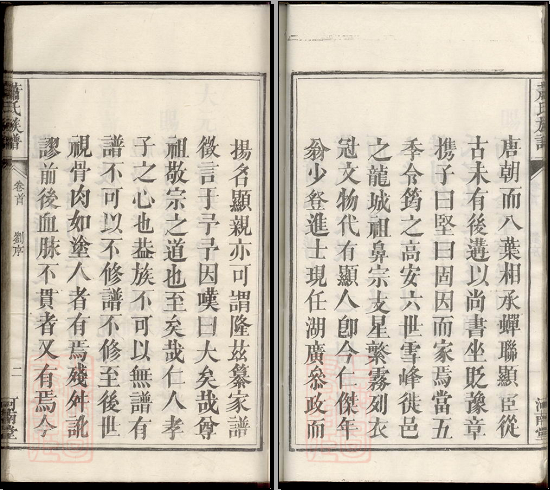 唐朝而八葉相承蟬聯顯臣從
古未有後遘以尚書坐貶豫章
携子曰堅曰固因而家焉當五
季令筠之高安六世雪峰徙邑
之龍城祖鼻宗支星繁霧列衣
冠文物代有顯人卽今仁傑年
翁少登進士現任湖廣叅政而
揚名顯親亦可謂隆茲纂家譜
徵言于予予因嘆曰大矣哉尊
祖敬宗之道也至矣哉仁人孝
子之心也葢族不可以無譜有
譜不可以不修譜不修至後世
視骨肉如塗人者有焉殘舛訛
謬前後血脉不貫者又有焉今
蕭氏族譜
卷首 劉序 二
河南堂